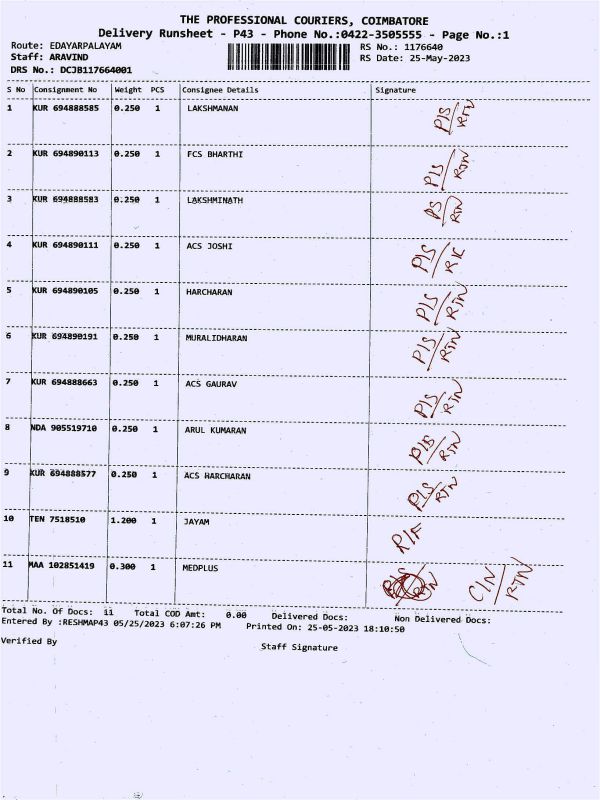 THE PROFESSIONAL COURIERS, COIMBATORE
Delivery Runsheet - P43 - Phone No.:0422-3505555 - Page No.:1
Route: EDAYARPALAYAM RS No.: 1176640
Staff: ARAVIND RS Date: 25-May-2023
DRS No.: DCJB117664001
S No Consignment No Weight PCS Consignee Details Signature
1 KUR 694888585 0.250 1 LAKSHMANAN P/S/RTN
2 KUR 694890113 0.250 1 FCS BHARTHI P/S/RTN
3 KUR 694888583 0.250 1 LAKSHMINATH PS/RTN
4 KUR 694890111 0.250 1 ACS JOSHI P/S/
5 KUR 694890105 0.250 1 HARCHARAN P/S/RTN
6 KUR 694890191 0.250 1 MURALIDHARAN P/S/RTN
7 KUR 694888663 0.250 1 ACS GAURAV P/S/RTN
8 NDA 905519710 0.250 1 ARUL KUMARAN P/S/RTN
9 KUR 694888577 0.250 1 ACS HARCHARAN P/S/RTN
10 TEN 7518510 1.200 1 JAYAM
11 MAA 102851419 0.300 1 MEDPLUS C/N/RTN
Total No. Of Docs: 11 Total COD Amt: 0.00 Delivered Docs: Non Delivered Docs:
Entered By :RESHMAP43 05/25/2023 6:07:26 PM Printed On: 25-05-2023 18:10:50
Verified By Staff Signature